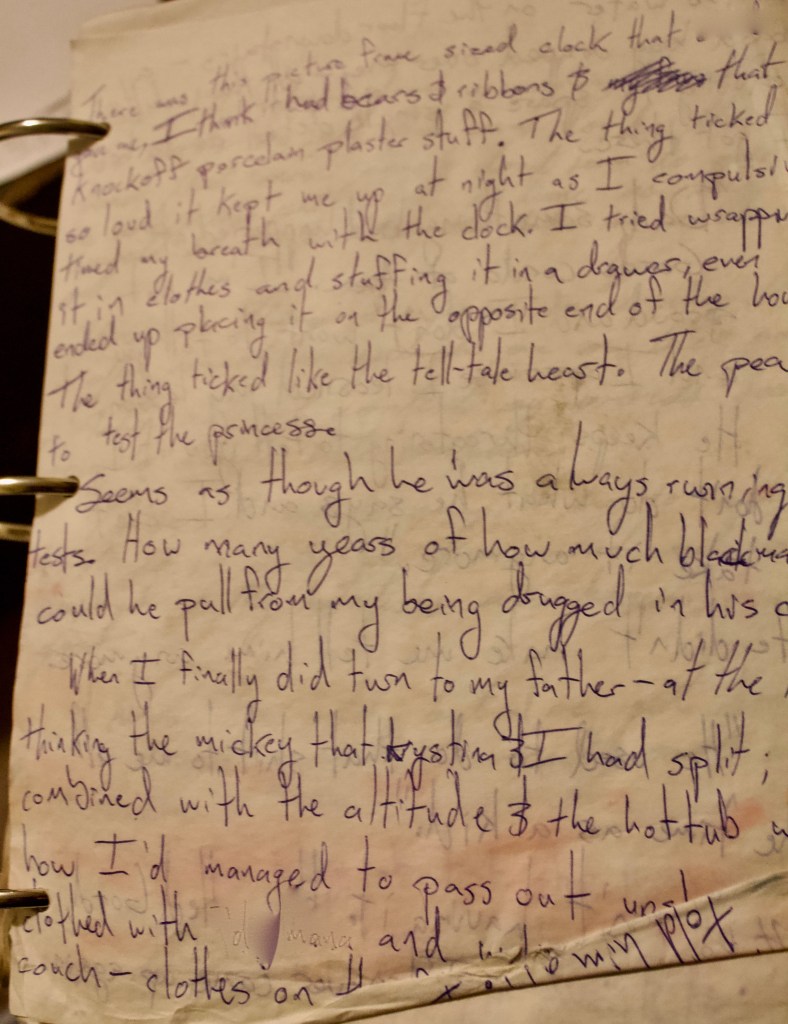 There was this picture frame sized clock that
gave me, I think had bears & ribbons & that
knockoff porcelain plaster stuff. The thing ticked
so loud it kept me up at night as I compulsi
timed my breath with the clock. I tried wrappin
it in clothes and stuffing it in a drawer, even
ended up placing it on the opposite end of the hou
The thing ticked like the tell-tale heart. The pea
to test the princess.
Seems as though he was always running
tests. How many years of how much blackma
could he pull from my being drugged in his c
When I finally did turn to my father—at the
thinking the mickey that Krystina & I had split;
combined with the altitude & the hottub w
how I'd managed to pass out
clothed with and
couch— clothes on